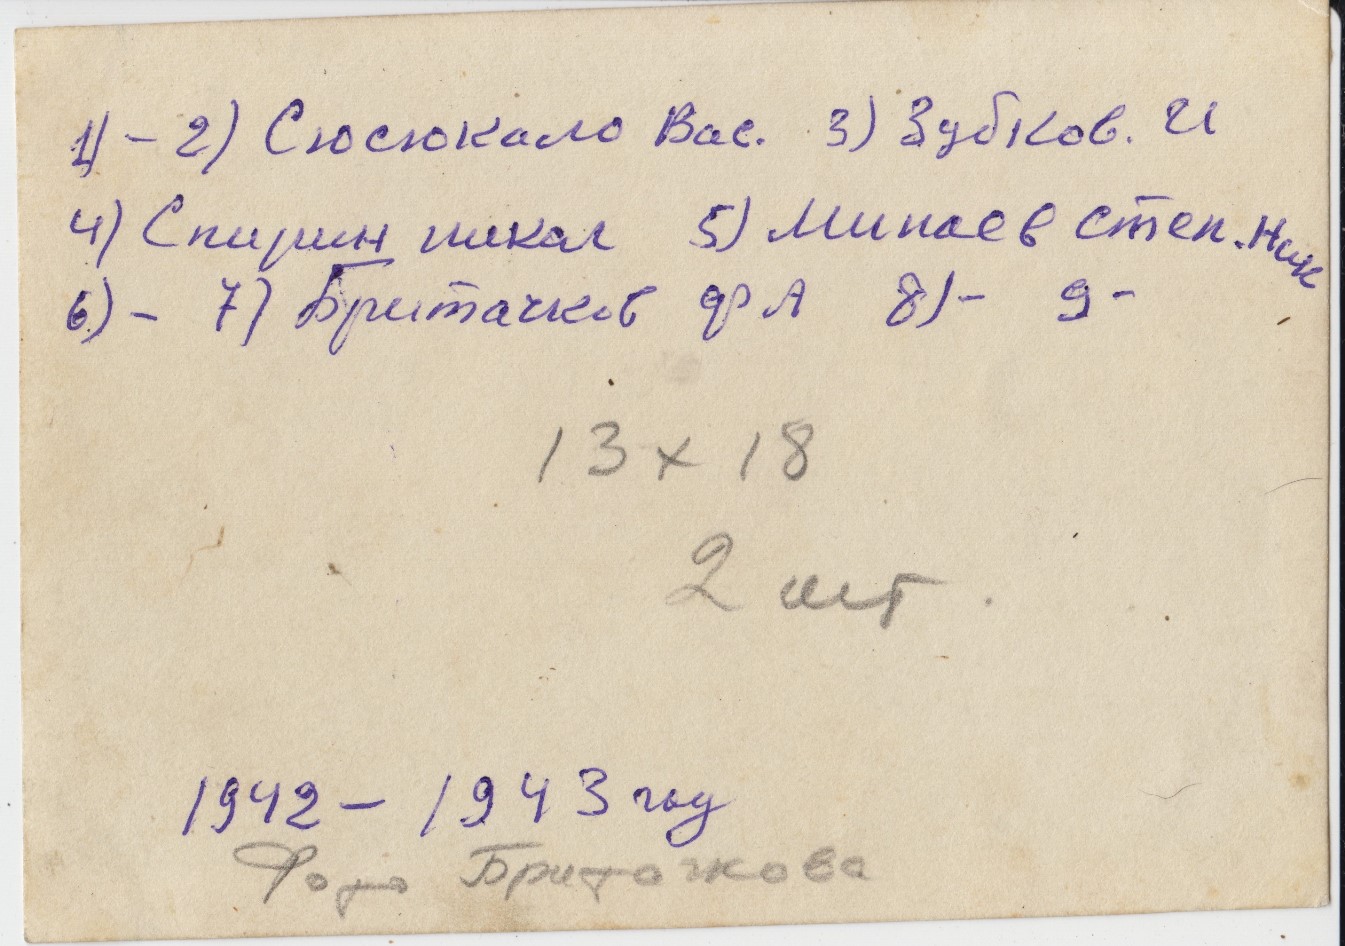 1) - 2) Сюсюкало Вас. 3) Зубков. И
4) Спирин никол 5) Минаев Степ. Ник
6) - 7) Бритачков Ф А 8) - 9 -
13 х 18
2 шт.
1942 - 1943 году
Фото Бритачкова